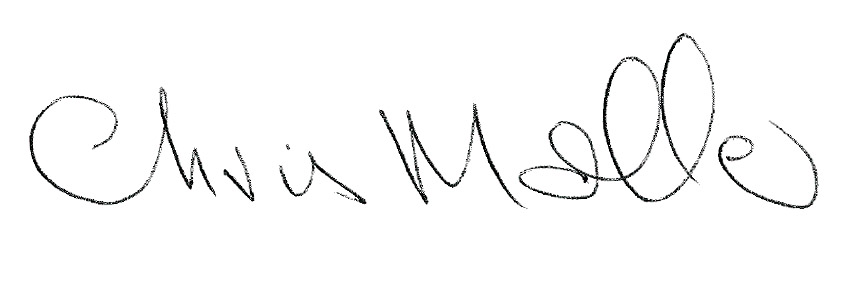 Chris Malle